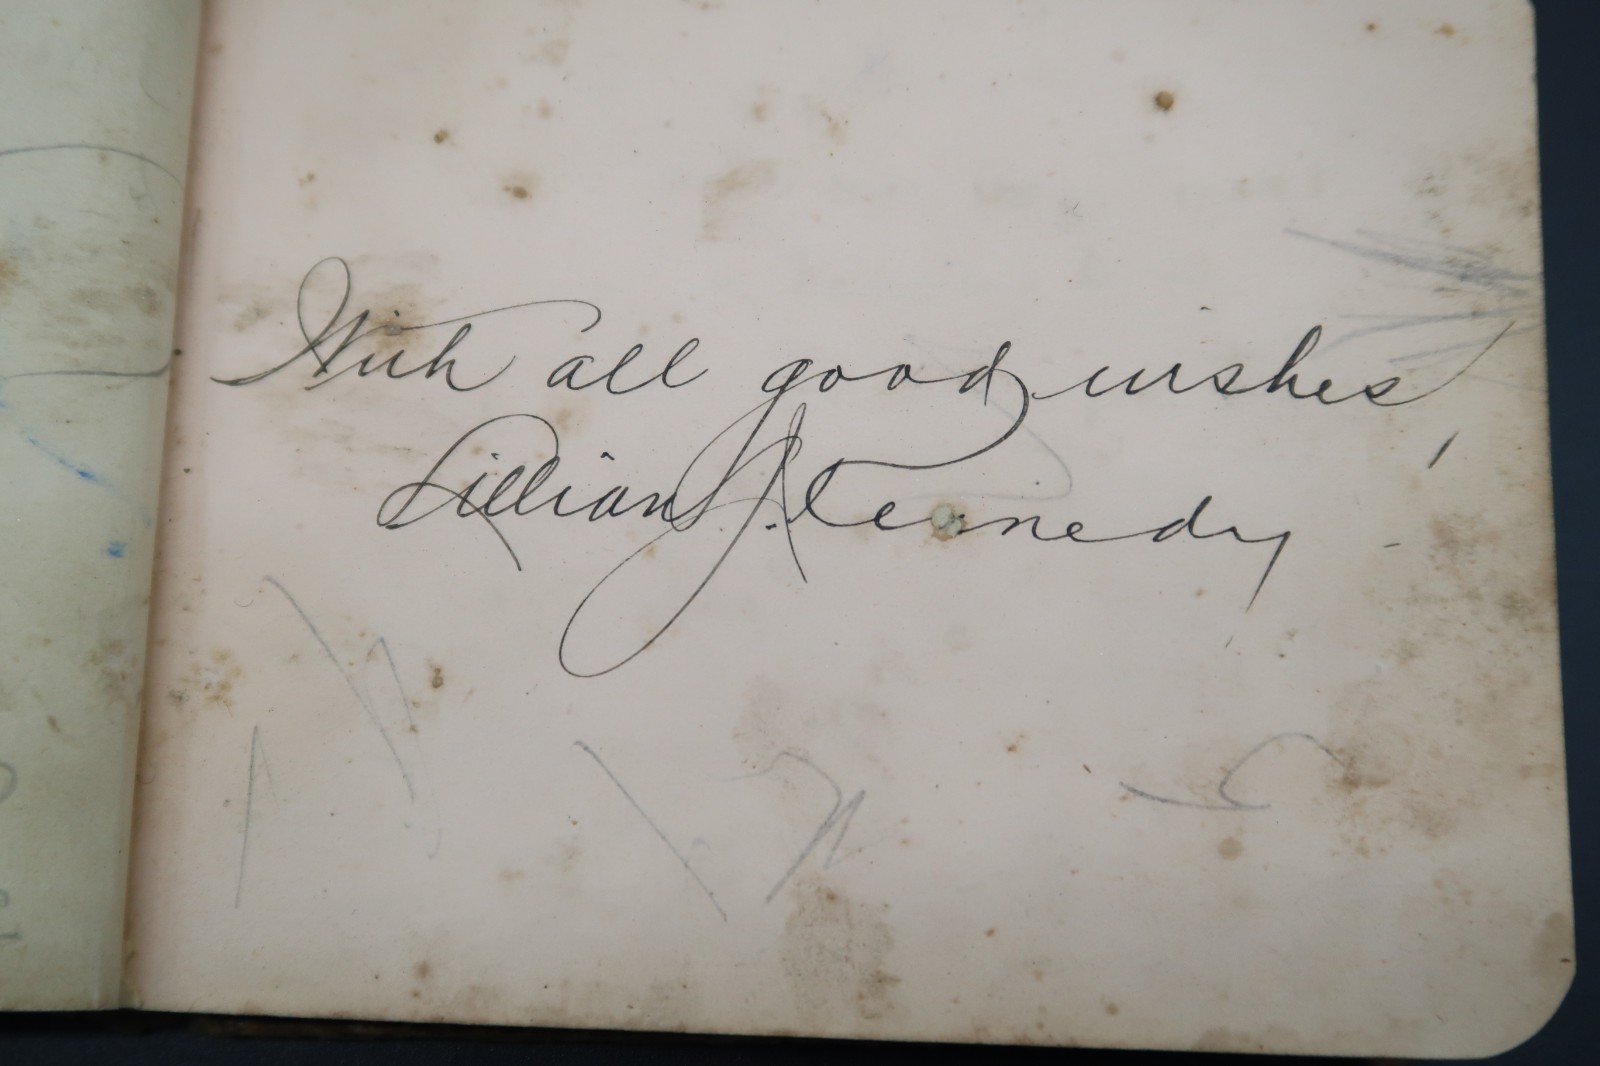 With all good wishes,
Lillian J. Kennedy